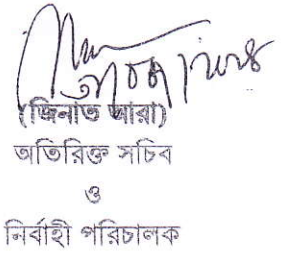 (জিনাত আরা)
অতিরিক্ত সচিব
ও
নির্বাহী পরিচালক